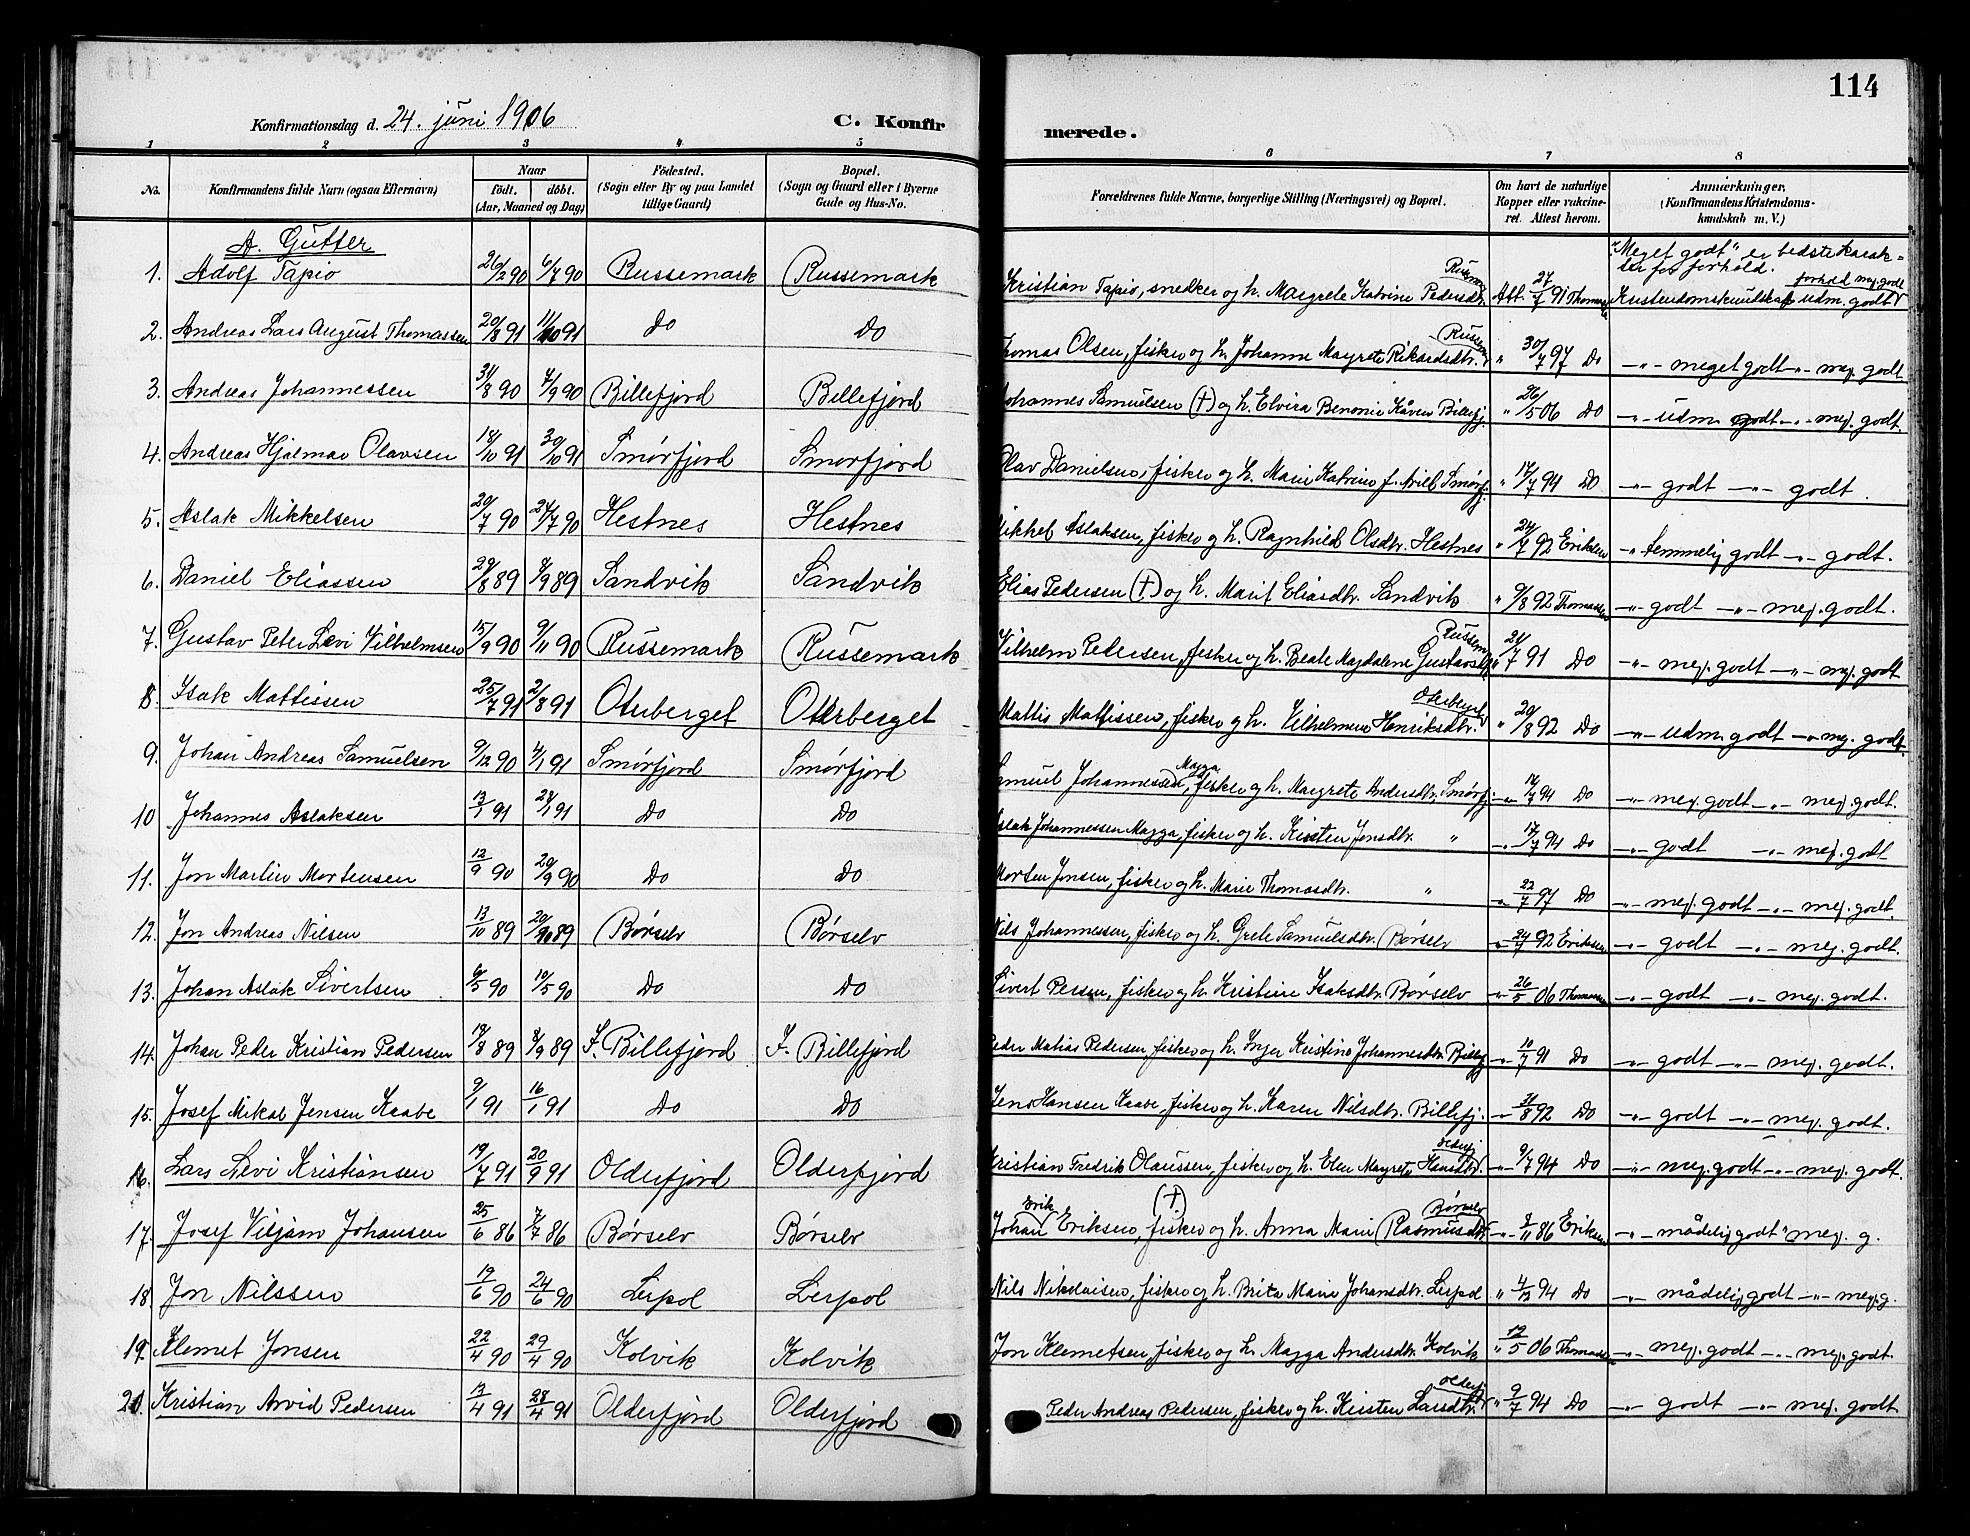 114
Konfirmationsdag d. 24. juni 1906 C. Konfir merede.
1 2 3 4 5 6 7 8
No. Konfirmandens fulde Navn (ogsaa Efternavn) Naar födt. döbt. (Aar, Maaned og Dag) Födested. (Sogn eller By og paa Landet tillige Gaard) Bopæl. (Sogn og Gaard eller i Byerne Gade og Hus-No. Forældrenes fulde Navne, borgerlige Stilling (Næringsvei) og Bopæl. Om havt de naturlige Kopper eller vakcineret. Attest herom. Anmærkninger. (Konfirmandens Kristendomskundskab m. V.)
A. Gutter
"Meget godt" er bedste karakter for forhold.
1. Adolf Tapio 26/2 90 6/7 90 Russemark Russemark Kristian Tapio, snedker og h. Margrete Katrine Pedersdtr. Att. 27/7 91 Kristendomskundskap udm. godt forhold meg. godt
2. Andreas Lars August Thomassen 20/8 91 11/10 91 Do Do Thomas Olsen, fisker og h. Johanne Margrete Rikardsdtr. " 30/7 97 Do -"- meget godt -"- meg. godt
3. Andreas Johannessen 31/8 90 7/9 90 Billefjord Billefjord Johannes Samuelsen (+) og h. Elvira Benonie Kåven Billefj. " 26/5 06 Do -"- udm. godt -"- meg. godt.
4. Andreas Hjalmar Olavsen 18/10 91 30/10 91 Smørfjord Smørfjord Olav Danielsen, fisker og h. Marie Katrine f. Smørfj. " 17/7 94 Do -"- godt -"- godt.
5. Aslak Mikkelsen 20/7 90 27/7 90 Hestnes Hestnes Mikkel Aslaksen, fisker og h. Ragnhild Olsdtr. Hestnes " 24/7 92 Eriksen -"- temmelig godt -"- godt.
6. Daniel Eliassen 29/8 89 8/9 89 Sandvik Sandvik Elias Pedersen (+) og h. Marit Eliasdtr. Sandvik " 9/8 92 Thomassen -"- godt -"- meg. godt.
7. Gustav Peter Levi Vilhelmsen 15/9 90 9/11 90 Russemark Russemark Vilhelm Pedersen, fisker og h. Beate Magdalene Gustavsdtr. 91 Do -"- meg. godt -"- meg. godt
8. Isak Mattissen 25/7 91 2/8 91 Oterberget Oterberget Mattis Mattissen, fisker og h. Vilhelmine Henriksdtr. Oterberget " 20/8 92 Do -"- udm. godt -"- meg. godt.
9. Johan Andreas Samuelsen 9/12 90 4/1 91 Smørfjord Smørfjord Samuel Johannessen Magga, fisker og h. Margrete Andersdtr. Smørfj. 94 Do -"- meg. godt -"- meg. godt.
10 Johannes Aslaksen 13/1 91 91 Do Do Aslak Johannessen Magga, fisker og h. Kirsten Jonsdtr. " -"- 17/7 94 Do -"- godt -"- meg. godt
11. Jon Martin Mortensen 12/9 90 20/9 90 Do Do Morten Jonsen, fisker og h. Marie Thomasdtr. " -"- 22/7 97 Do -"- meg. godt -"- meg. godt.
12. Jon Andreas Nilsen 13/10 89 20/10 89 Børselv Børselv Nils Johannessen, fisker og h. Grete Samuelsdtr. Børselv " 24/7 92 Eriksen -"- godt -"- meg. godt.
13. Johan Aslak Sivertsen 6/5 90 19/5 90 Do Do Sivert Persen, fisker og h. Kristine Isaksdtr. Børselv -"- 26/5 06 Thomassen -"- godt -"- meg. godt.
14. Johan Peder Kristian Pedersen 19/8 89 8/9 89 I. Billefjord I. Billefjord Peder Matias Pedersen, fisker og h. Inger Kristine Johannesdtr. Billefj. -"- 10/7 91 Do -"- godt -"- meg. godt.
15. Josef Mikal Jensen Kaabe 9/1 91 16/1 91 Do Do Jens Hansen Kaabe, fisker og h. Karen Nilsdtr. Billefj. -"- 31/8 92 Do -"- godt -"- meg. godt.
16. Lars Levi Kristiansen 19/7 91 20/9 91 Olderfjord Olderfjord Kristian Fredrik Olaussen, fisker og h. Elen Margrete Hansdtr. Olderfj. -"- 9/7 94 Do -"- meg. godt -"- meg. godt.
17. Josef Viljam Johansen 25/6 86 7/7 86 Børselv Børselv Johan Erik Eriksen, fisker (+) og h. Anna Marie Rasmusdtr. Børselv -"- 86 Eriksen -"- mådelig godt " meg. g.
18. Jon Nilssen 19/6 90 24/6 90 Lerpol Lerpol Nils Nikolaisen, fisker og h. Brita Marie Johansdtr. Lerpol " 94 Do -"- mådelig godt -"- meg. g.
19. Klemet Jonsen 22/4 90 29/4 90 Kolvik Kolvik Jon Klemetsen, fisker og h. Magga Andersdtr. Kolvik " 19/5 06 Thomassen -"- meg. godt -"- meg. godt.
20. Kristian Arvid Pedersen 13/4 91 28/4 91 Olderfjord Olderfjord Peder Andreas Pedersen, fisker og h. Kirsten Larsdtr. Olderfj. " 9/7 94 Do -"- godt -"- meg. godt.